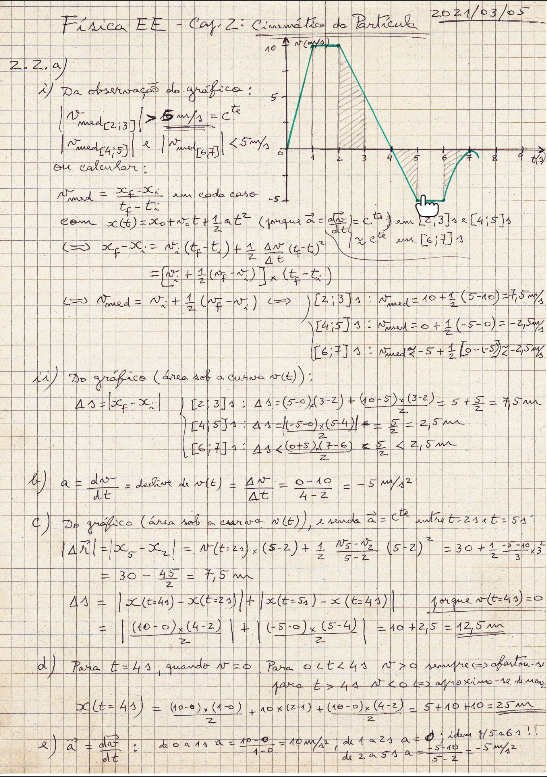 2021/03/05
Física EE - Cap. 2: Cinemática da Partícula
2.2.a)
v(m/s)
10
5
0
-5
1 2 3 4 5 6 7 t(s)
i) Da observação do gráfico:
|v_med[2;3]| > 5 m/s = c^te
|v_med[4;5]| e |v_med[6;7]| < 5 m/s
ou calcular:
v_med = (x_f - x_i)/(t_f - t_i) em cada caso
com x(t) = x_0 + v_0 t + 1/2 a t² (porque a⃗ = dv⃗/dt = c^te) em [2;3]s e [4;5]s
≈ c^te em [6;7] s
(=) x_f - x_i = v_i (t_f - t_i) + 1/2 Δv/Δt (t_f - t_i)²
= [v_i + 1/2 (v_f - v_i)] × (t_f - t_i)
(=) v_med = v_i + 1/2 (v_f - v_i) (=) [2;3] s: v_med = 10 + 1/2 (5-10) = 7,5 m/s
[4;5] s: v_med = 0 + 1/2 (-5-0) = -2,5 m/s
[6;7] s: v_med ≈ -5 + 1/2 [0-(-5)] ≈ -2,5 m/s
ii) Do gráfico (área sob a curva v(t)):
Δs = |x_f - x_i| [2;3] s: Δs = (5-0)×(3-2) + (10-5)×(3-2)/2 = 5 + 5/2 = 7,5 m
[4;5] s: Δs = |(-5-0)×(5-4)|/2 = 5/2 = 2,5 m
[6;7] s: Δs < (0+5)×(7-6)/2 < 5/2 < 2,5 m
b) a = dv/dt = declive de v(t) = Δv/Δt = (0-10)/(4-2) = -5 m/s²
c) Do gráfico (área sob a curva v(t)), e sendo a⃗ = c^te entre t=2s e t=5s:
|Δr⃗| = |x_5 - x_2| = v(t=2s) × (5-2) + 1/2 (v_5 - v_2)/(5-2) (5-2)² = 30 + 1/2 (-5-10)/3 × 3²
= 30 - 45/2 = 7,5 m
Δs = |x(t=4s) - x(t=2s)| + |x(t=5s) - x(t=4s)| porque v(t=4s)=0
= |(10-0)×(4-2)/2| + |(-5-0)×(5-4)/2| = 10 + 2,5 = 12,5 m
d) Para t=4s, quando v=0 Para 0<t<4s v>0 sempre (=) afastou-se
para t>4s v<0 (=) aproximo-se de novo
x(t=4s) = (10-0)×(1-0)/2 + 10×(2-1) + (10-0)×(4-2)/2 = 5+10+10 = 25 m
e) a⃗ = dv⃗/dt : de 0 a 1s a = (10-0)/(1-0) = 10 m/s², de 1 a 2s a = 0; idem p/ 5 a 6s!!
de 2 a 5s a = (-5-10)/(5-2) = -5 m/s²